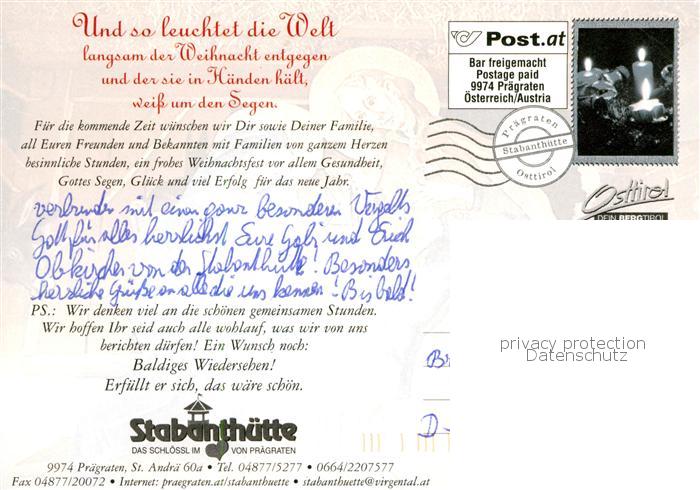 Und so leuchtet die Welt
langsam der Weihnacht entgegen
und der sie in Händen hält,
weiß um den Segen.
Für die kommende Zeit wünschen wir Dir sowie Deiner Familie,
all Euren Freunden und Bekannten mit Familien von ganzem Herzen
besinnliche Stunden, ein frohes Weihnachtsfest vor allem Gesundheit,
Gottes Segen, Glück und viel Erfolg für das neue Jahr.
verbunden mit einem ganz besonderen Vergelts
Gott für alles herzlichst Eure Gabi und Erich
Obkircher von der Stabanthütte! Besonders
herzliche Grüße an alle die uns kennen! Bis bald!
PS.: Wir denken viel an die schönen gemeinsamen Stunden.
Wir hoffen Ihr seid auch alle wohlauf, was wir von uns
berichten dürfen! Ein Wunsch noch:
Baldiges Wiedersehen!
Erfüllt er sich, das wäre schön.
Stabanthütte
DAS SCHLÖSSL IM VON PRÄGRATEN
9974 Prägraten, St. Andrä 60a • Tel. 04877/5277 • 0664/2207577
Fax 04877/20072 • Internet: praegraten.at/stabanthuette • stabanthuette@virgental.at
Post.at
Bar freigemacht
Postage paid
9974 Prägraten
Österreich/Austria
Prägraten
Stabanthütte
Osttirol
Osttirol
DEIN BERGTIROL
privacy protection
Datenschutz
D-